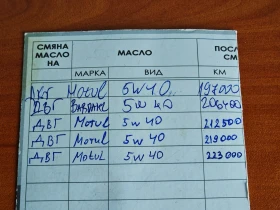 СМЯНА МАСЛО НА МАСЛО ПОСЛ СМ
МАРКА ВИД КМ
ДВГ Motul 5w40 197000
ДВГ 5w40
ДВГ Motul 5w40 212500
ДВГ Motul 5w40 219000
ДВГ Motul 5w40 223000